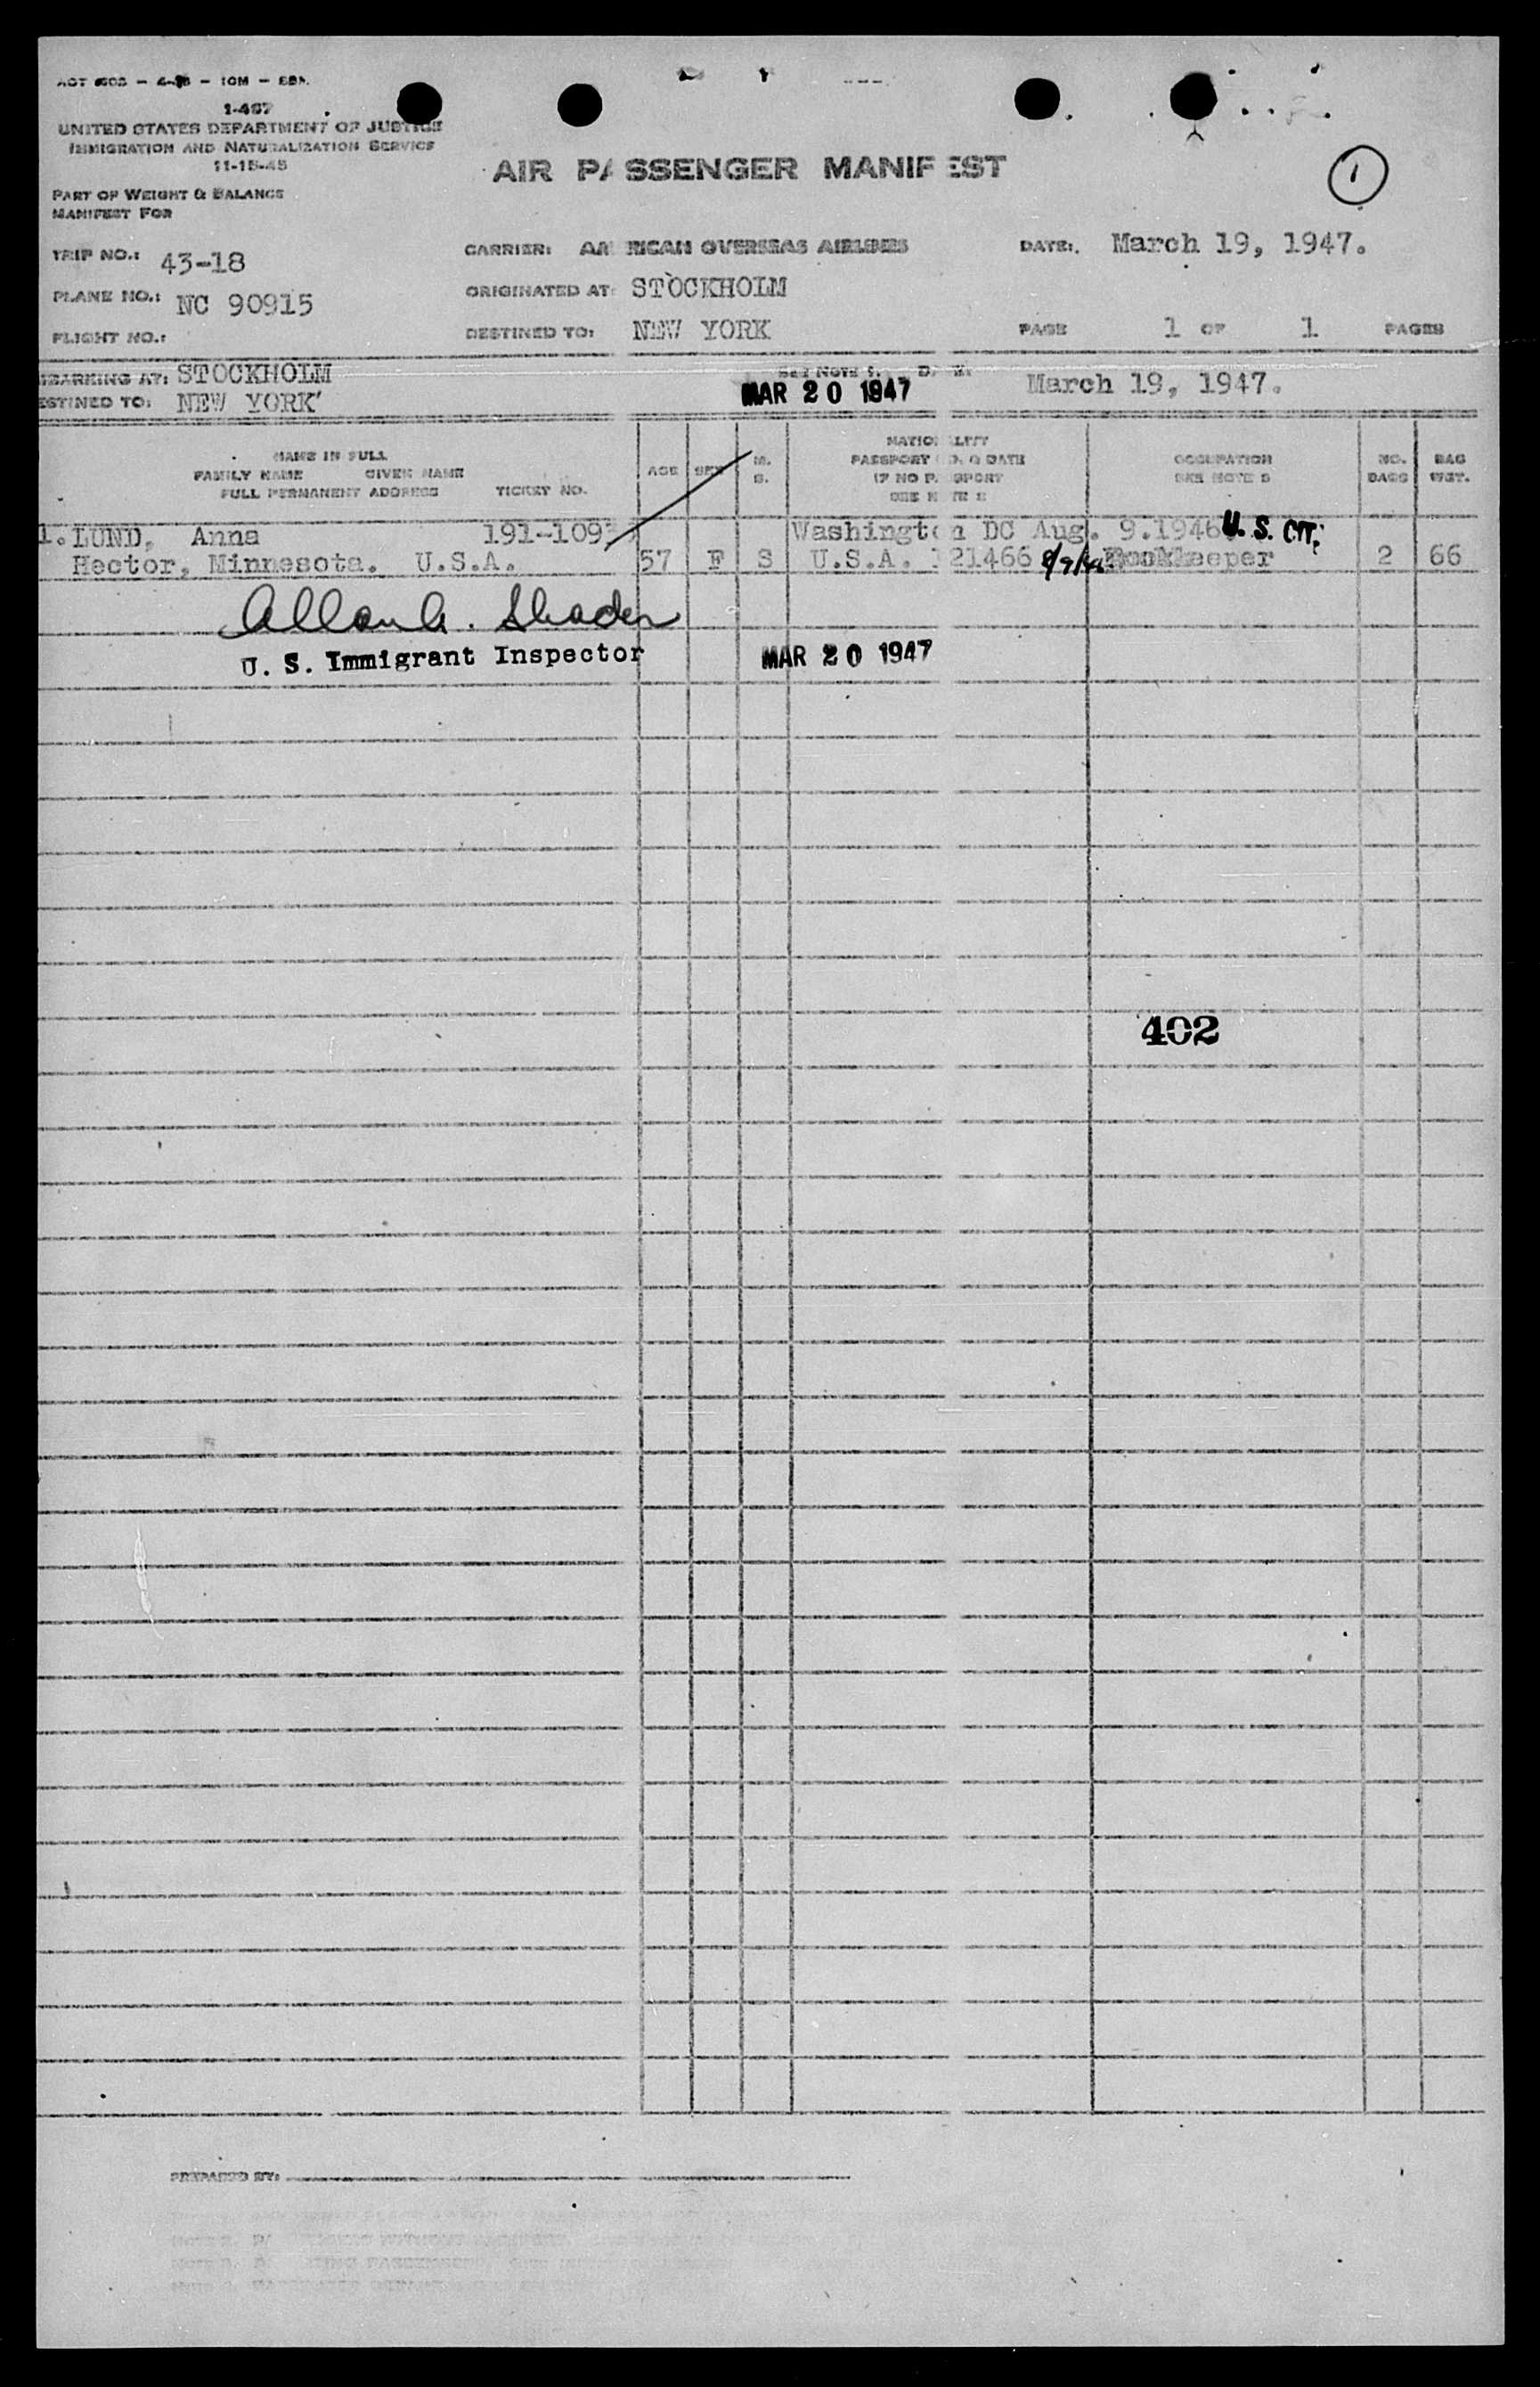 1-467
UNITED STATES DEPARTMENT OF JUSTICE
IMMIGRATION AND NATURALIZATION SERVICE
11-15-45
PART OF WEIGHT & BALANCE
MANIFEST FOR
AIR PASSENGER MANIFEST
1
TRIP NO.: 43-18
CARRIER: AMERICAN OVERSEAS AIRLINES
DATE: March 19, 1947.
PLANE NO.: NC 90915
ORIGINATED AT: STOCKHOLM
FLIGHT NO.:
DESTINED TO: NEW YORK
PAGE 1 OF 1 PAGES
EMBARKING AT: STOCKHOLM
SEE NOTE 1. DATE: March 19, 1947.
DESTINED TO: NEW YORK
MAR 20 1947
NAME IN FULL
FAMILY NAME GIVEN NAME
FULL PERMANENT ADDRESS TICKET NO.
AGE SEX M. S.
NATIONALITY
PASSPORT NO. & DATE
IF NO PASSPORT
SEE NOTE 2
OCCUPATION
SEE NOTE 3
NO. BAGS
BAG WGT.
1. LUND, Anna 191-1093 Washington DC Aug. 9.1946 U. S. CIT.
Hector, Minnesota. U.S.A. 57 F S U.S.A. 121466 8/9/46 Bookkeeper 2 66
Allan A. Shader
U. S. Immigrant Inspector MAR 20 1947
402
PREPARED BY: